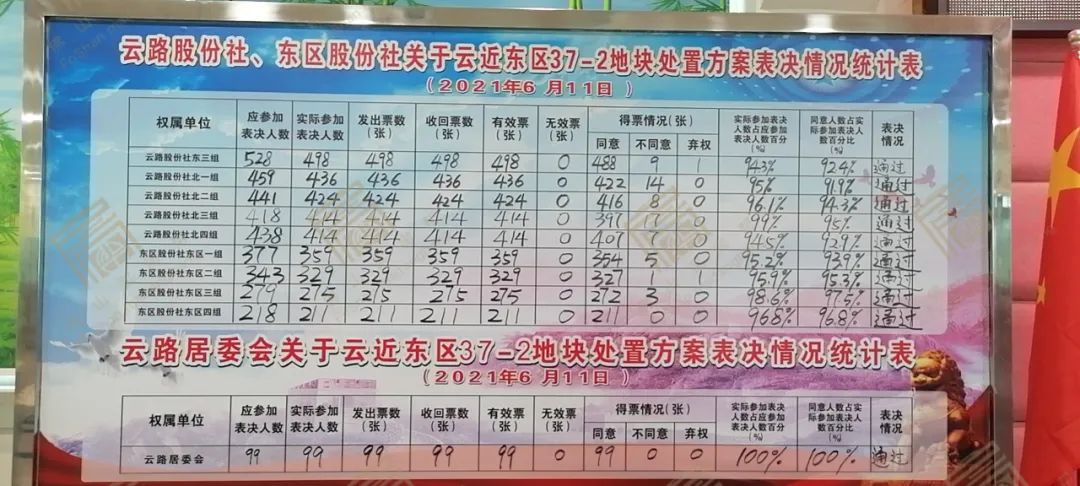 云路股份社、东区股份社关于云近东区37-2地块处置方案表决情况统计表
(2021年6月11日)
权属单位 应参加表决人数 实际参加表决人数 发出票数(张) 收回票数(张) 有效票(张) 无效票(张) 得票情况(张) 同意 不同意 弃权 实际参加表决人数占应参加表决人数百分(%) 同意人数占实际参加表决人数百分比(%) 表决情况
云路股份社东三组 528 498 498 498 498 0 488 9 1 94.3% 92.4% 通过
云路股份社北一组 459 436 436 436 436 0 422 14 0 95% 91.9% 通过
云路股份社北二组 441 424 424 424 424 0 416 8 0 96.1% 94.3% 通过
云路股份社北三组 418 414 414 414 414 0 397 0 99% 95% 通过
云路股份社北四组 438 414 414 414 414 0 407 7 0 94.5% 92.9% 通过
东区股份社东区一组 377 359 359 359 359 0 354 5 0 95.2% 93.9% 通过
东区股份社东区二组 343 329 329 329 329 0 327 1 1 95.9% 95.3% 通过
东区股份社东区三组 279 275 275 275 275 0 272 3 0 98.6% 97.5% 通过
东区股份社东区四组 218 211 211 211 211 0 211 0 0 96.8% 96.8% 通过
云路居委会关于云近东区37-2地块处置方案表决情况统计表
(2021年6月11日)
权属单位 应参加表决人数 实际参加表决人数 发出票数(张) 收回票数(张) 有效票(张) 无效票(张) 得票情况(张) 同意 不同意 弃权 实际参加表决人数占应参加表决人数百分(%) 同意人数占实际参加表决人数百分比(%) 表决情况
云路居委会 99 99 99 99 99 0 99 0 0 100% 100% 通过